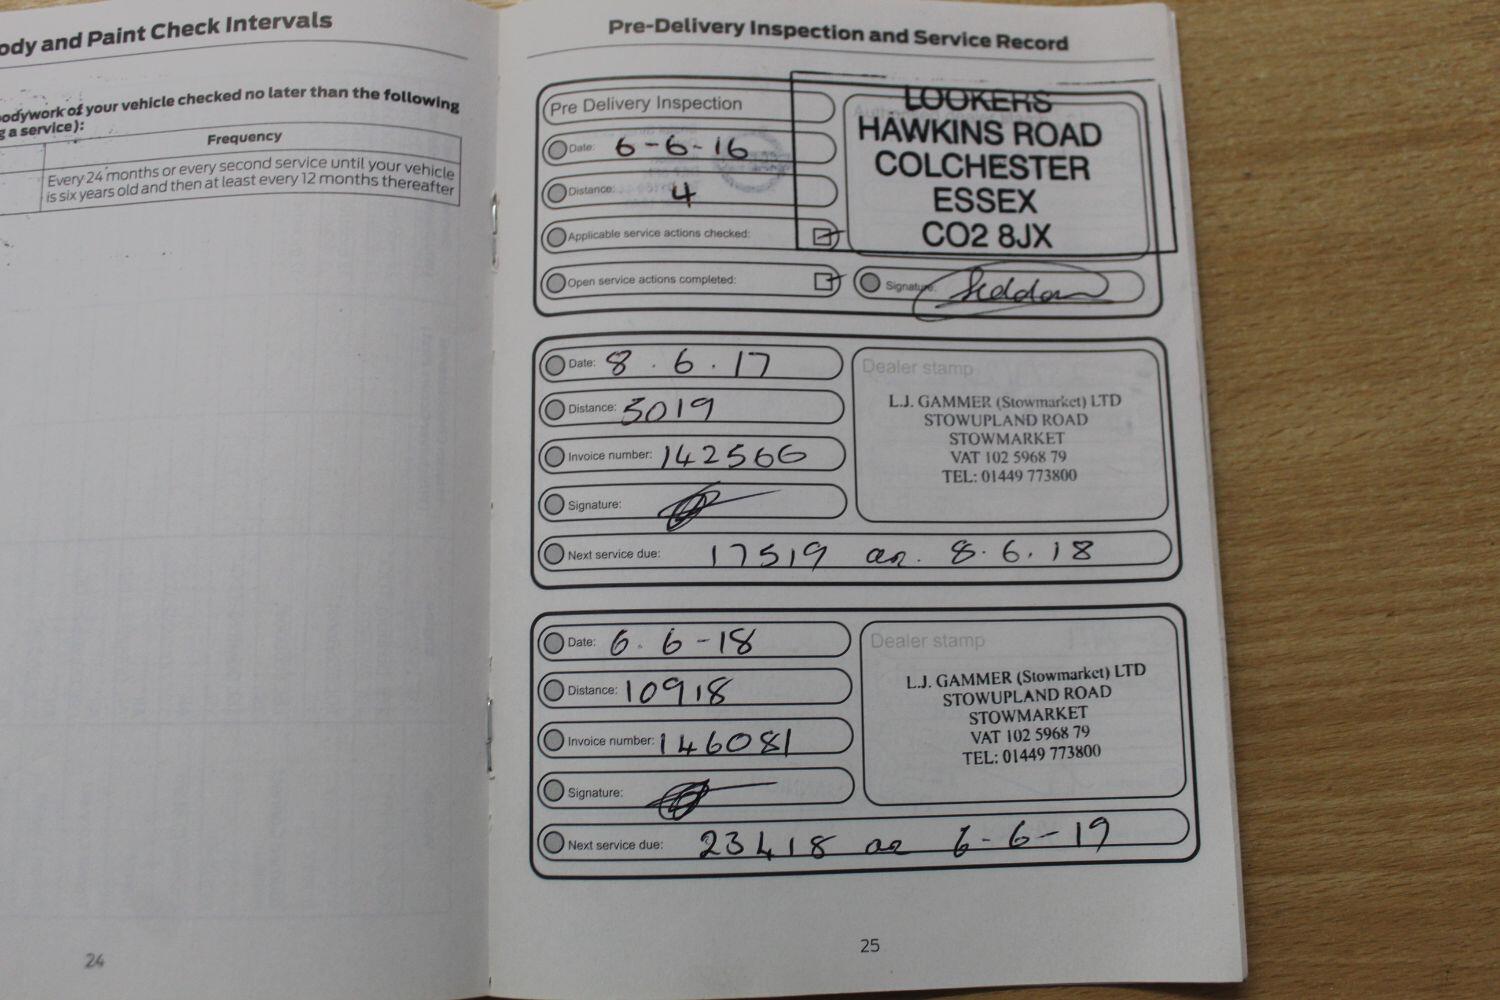 ody and Paint Check Intervals
odywork of your vehicle checked no later than the following
g a service):
Frequency
Every 24 months or every second service until your vehicle
is six years old and then at least every 12 months thereafter
24
Pre-Delivery Inspection and Service Record
Pre Delivery Inspection
Date: 6-6-16
Distance: 4
Applicable service actions checked:
Open service actions completed:
LOOKERS
HAWKINS ROAD
COLCHESTER
ESSEX
CO2 8JX
Signature:
Date: 8.6.17
Distance: 5019
Invoice number: 142566
Signature:
Next service due: 17519 or. 8.6.18
Dealer stamp
L.J. GAMMER (Stowmarket) LTD
STOWUPLAND ROAD
STOWMARKET
VAT 102 5968 79
TEL: 01449 773800
Date: 6.6-18
Distance: 10918
Invoice number: 146081
Signature:
Next service due: 23418 or 6-6-19
Dealer stamp
L.J. GAMMER (Stowmarket) LTD
STOWUPLAND ROAD
STOWMARKET
VAT 102 5968 79
TEL: 01449 773800
25